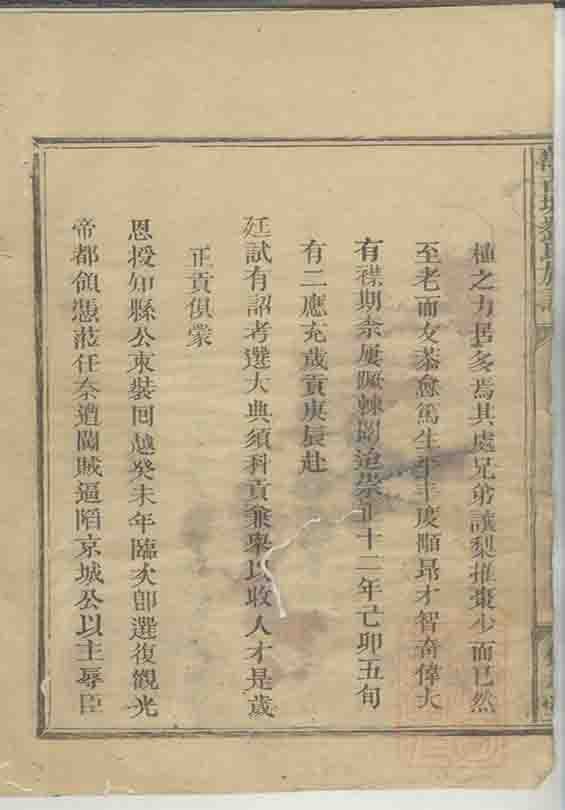 植之力居多焉其處兄弟讓梨推棗少而已然
至老而友恭愈篤生平丰度顒昂才智奇偉大
有襟期奈屢躓棘闈迨崇正十二年己卯五旬
有二應充歲貢庚辰赴
廷試有詔考選大典須科貢兼舉以收人才是歲
正貢俱蒙
恩授知縣公束裝回越癸未年臨次卽選復觀光
帝都領憑蒞任奈遭闖賊逼陷京城公以主辱臣